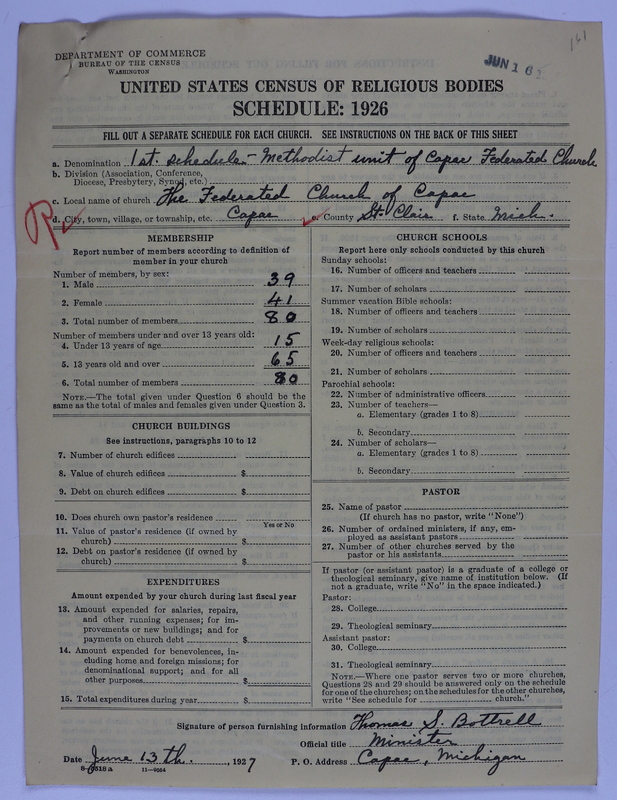 161
DEPARTMENT OF COMMERCE
BUREAU OF THE CENSUS
WASHINGTON
JUN 16
UNITED STATES CENSUS OF RELIGIOUS BODIES
SCHEDULE: 1926
FILL OUT A SEPARATE SCHEDULE FOR EACH CHURCH. SEE INSTRUCTIONS ON THE BACK OF THIS SHEET
a. Denomination 1st. schedule - Methodist unit of Capac Federated Church
b. Division (Association, Conference,
Diocese, Presbytery, Synod, etc.)
c. Local name of church The Federated Church of Capac
d. City, town, village, or township, etc. Capac e. County St. Clair f. State Mich.
MEMBERSHIP
Report number of members according to definition of
member in your church
Number of members, by sex:
1. Male 39
2. Female 41
3. Total number of members 80
Number of members under and over 13 years old:
4. Under 13 years of age 15
5. 13 years old and over 65
6. Total number of members 80
NOTE.—The total given under Question 6 should be
same as the total of males and females given under Question 3.
CHURCH BUILDINGS
See instructions, paragraphs 10 to 12
7. Number of church edifices
8. Value of church edifices $
9. Debt on church edifices $
10. Does church own pastor's residence
Yes or No
11. Value of pastor's residence (if owned by
church) $
12. Debt on pastor's residence (if owned by
church) $
EXPENDITURES
Amount expended by your church during last fiscal year
13. Amount expended for salaries, repairs,
and other running expenses; for im-
provements or new buildings; and for
payments on church debt $
14. Amount expended for benevolences, in-
cluding home and foreign missions; for
denominational support; and for all
other purposes $
15. Total expenditures during year $
CHURCH SCHOOLS
Report here only schools conducted by this church
Sunday schools:
16. Number of officers and teachers
17. Number of scholars
Summer vacation Bible schools:
18. Number of officers and teachers
19. Number of scholars
Week-day religious schools:
20. Number of officers and teachers
21. Number of scholars
Parochial schools:
22. Number of administrative officers
23. Number of teachers—
a. Elementary (grades 1 to 8)
b. Secondary
24. Number of scholars—
a. Elementary (grades 1 to 8)
b. Secondary
PASTOR
25. Name of pastor
(If church has no pastor, write "None")
26. Number of ordained ministers, if any, em-
ployed as assistant pastors
27. Number of other churches served by the
pastor or his assistants
If pastor (or assistant pastor) is a graduate of a college or
theological seminary, give name of institution below. (If
not a graduate, write "No" in the space indicated.)
Pastor:
28. College
29. Theological seminary
Assistant pastor:
30. College
31. Theological seminary
NOTE.—Where one pastor serves two or more churches,
Questions 28 and 29 should be answered only on the schedule
for one of the churches; on the schedules for the other churches,
write "See schedule for church."
Signature of person furnishing information Thomas S. Bottrell
Official title Minister
Date June 13th., 1927 P. O. Address Capac, Michigan
8-5518a 11-9664